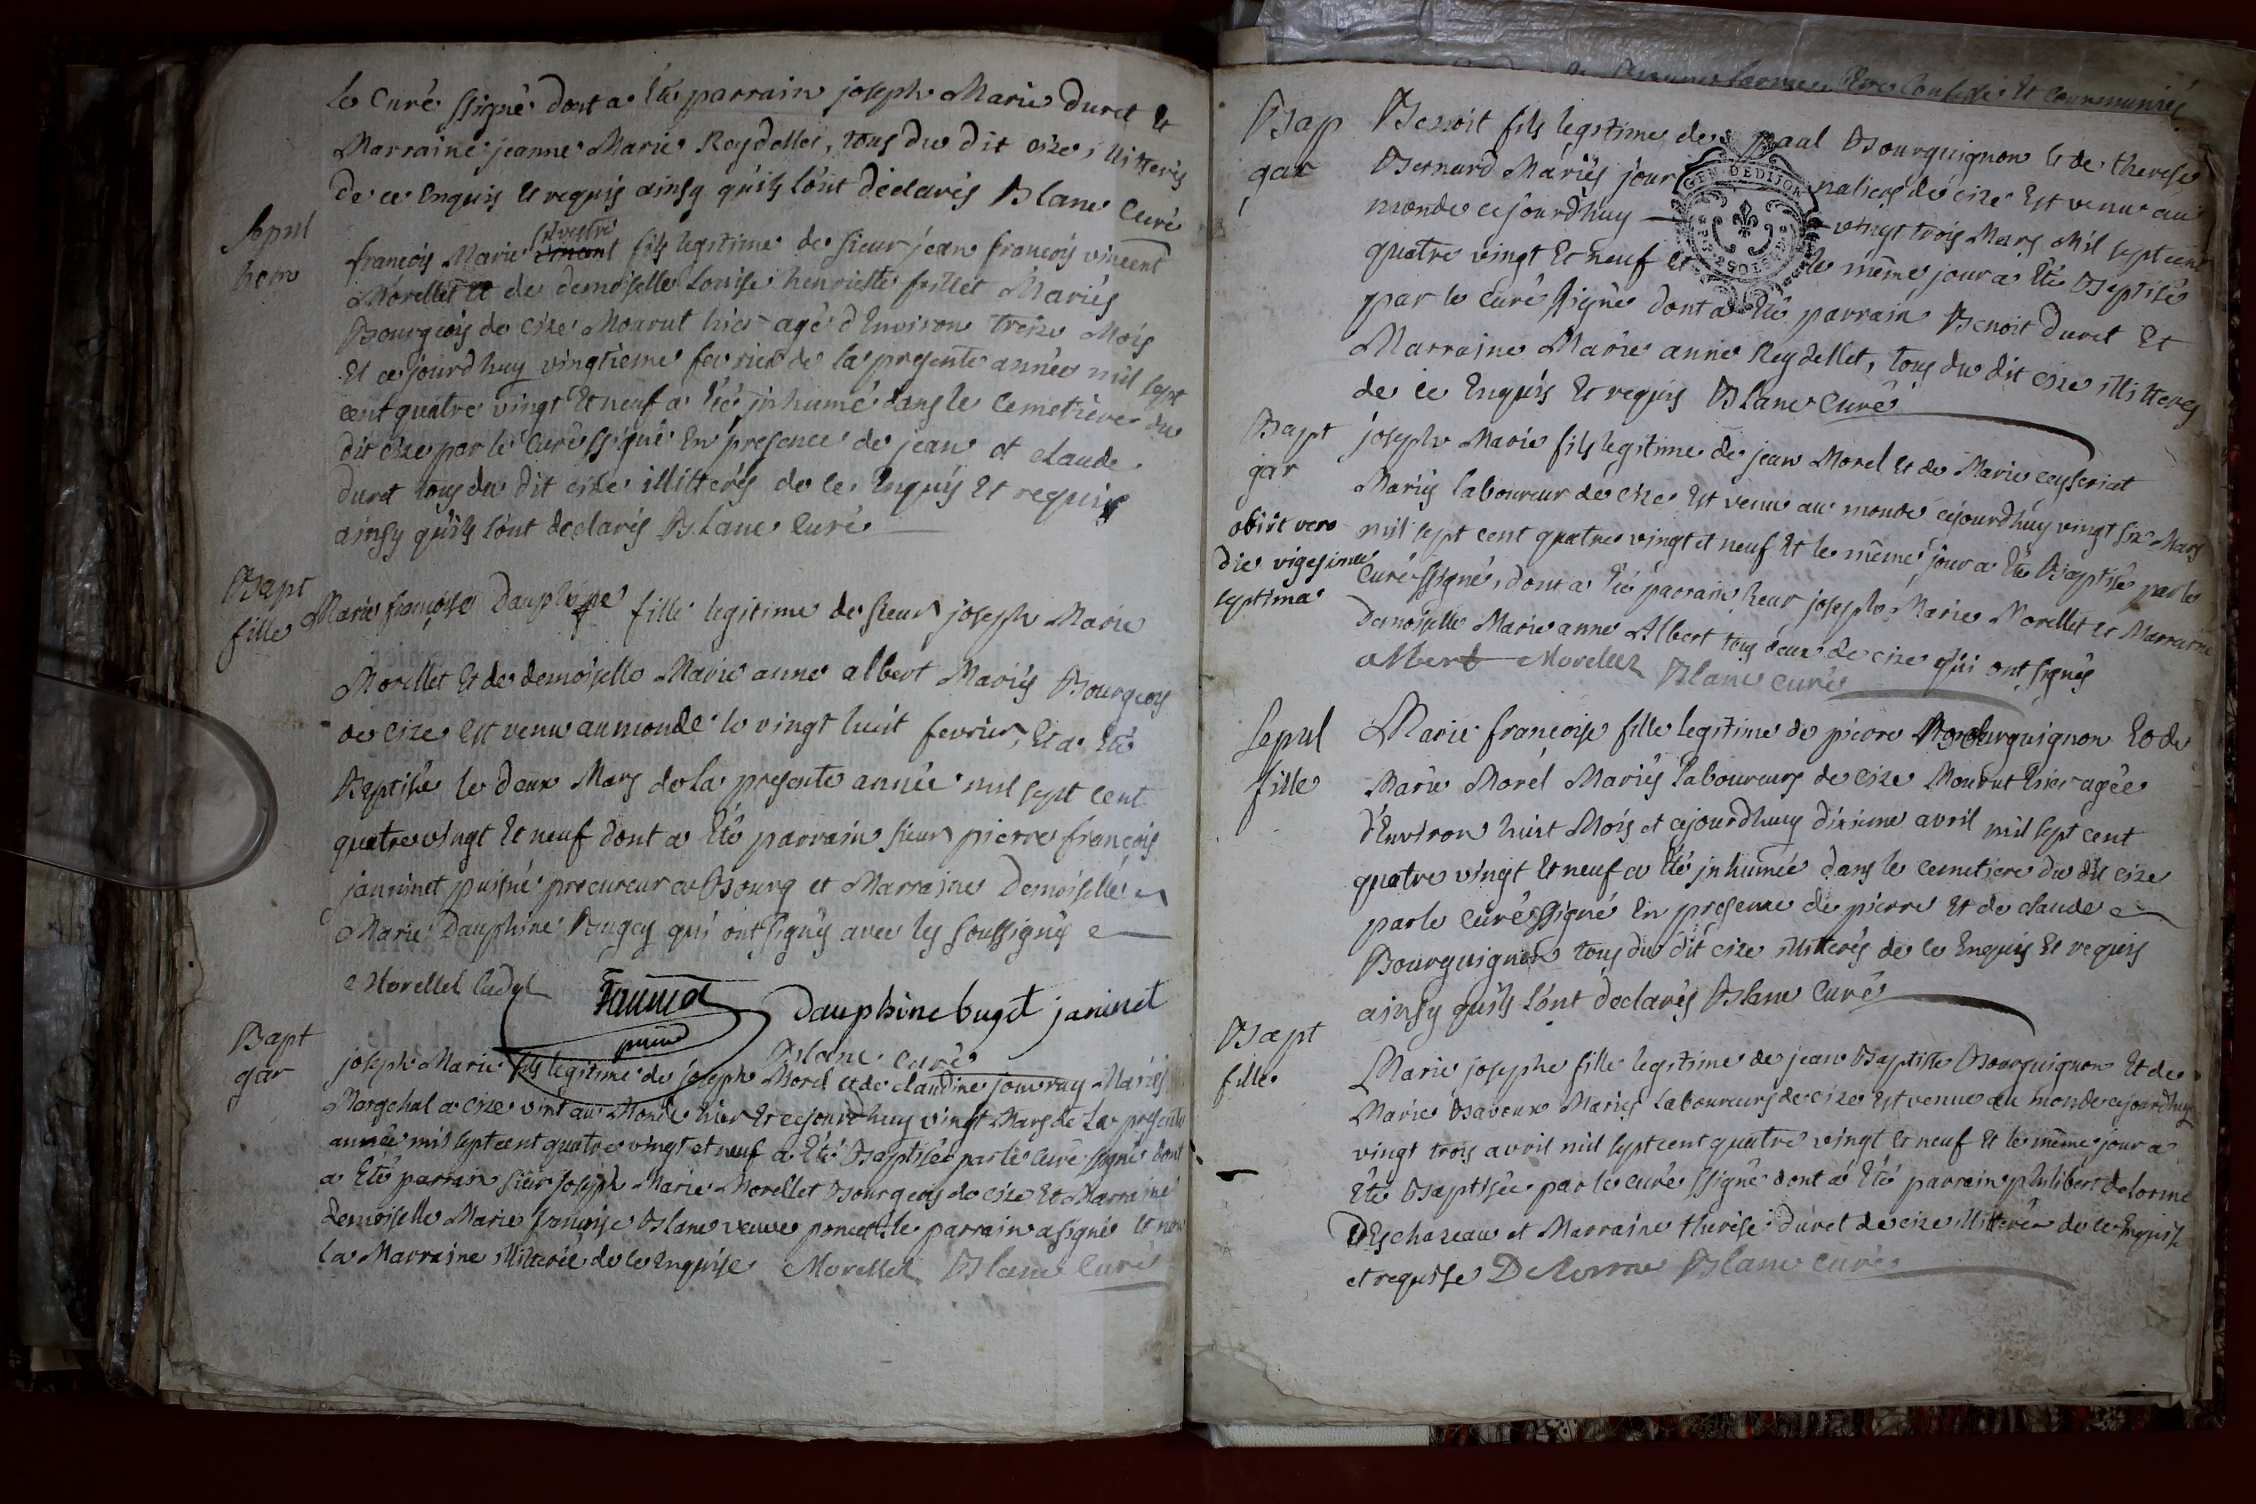 le Curé ssigné dont a été parrain joseph Marie duret et
Marraine jeanne Marie Reydellet, tous du dit cize illitterés
de ce Enquis et requis ainsy qu'ils l'ont declarés Blanc Curé
Sepul
hom
silvestre
françois Marie vincent fils legitime de sieur jean françois vincent
Morellet et de demoiselle Louise henriette frillet Mariés
Bourgeois de Cize Mourut hier agé d'Environ treize Mois
Et ce jourd'huy vingtieme fevrier de la presente année mil sept
cent quatre vingt Et neuf a été inhumé dans le Cemetiere du
dit cize par le Curé ssigné En presence de jean et claude
duret tous du dit cize illitterés de ce Enquis Et requis
ainsy qu'ils l'ont declarés Blanc Curé
Bapt
fille
Marie françoise Dauphine fille legitime de sieur joseph Marie
Morellet Et de demoiselle Marie anne albert Mariés Bourgeois
de cize Est venu au monde le vingt huit fevrier, Et a été
Baptisée le deux Mars de la presente année mil sept cent
quatre vingt Et neuf dont a été parrain sieur pierre françois
janninet puisné procureur a Bourg et Marraine Demoiselle
Marie Dauphine Buget qui ont signés avec les soussignés
Morellet cadet dauphine buget janinet
puiné
Blanc Curé
Bapt
gar
joseph Marie fils legitime de joseph Morel et de claudine jouvray Mariés
Marechal a cize vint au Monde hier Et cejourd'huy vingt Mars de La presente
année mil sept cent quatre vingt et neuf a été Baptisée par le curé ssigné dont
a Eté parrain sieur joseph Marie Morellet Bourgeois de cize Et Marraine
demoiselle Marie françoise Blanc veuve poncet le parrain a signé et non
la Marraine illiterée de ce Enquise Morellet Blanc Curé
Bap
gar
Benoit fils legitime de paul Bourguignon Et de therese
Bernard Mariés journaliers de cize Est venu au
monde cejourdhuy vingt trois Mars Mil sept cent
quatre vingt Et neuf Et le même jour a été Baptisé
par le Curé ssigné dont a été parrain Benoit duret Et
Marraine Marie anne Reydellet, tous du dit cize illitterés
de ce Enquis Et requis Blanc Curé
GEN DE DIJON
Bapt
gar
obiit vero
die vigesima
septima
joseph Marie fils legitime de jean Morel Et de Marie ceyseriat
Mariés laboureur de cize Est venu au monde cejourdhuy vingt six Mars
mil sept cent quatre vingt et neuf Et le même jour a été Baptisé par le
Curé ssigné, dont a été parrain sieur joseph Marie Morellet et Marraine
Demoiselle Marie anne Albert tous deux de cize qui ont signés
albert Morellet Blanc curé
Sepul
fille
Marie françoise fille legitime de pierre Bourguignon Et de
Marie Morel Mariés Laboureurs de cize Mourut hier agée
d'Environ huit Mois et cejourdhuy dixieme avril mil sept cent
quatre vingt Et neuf a été inhumée dans le cemetiere du dit cize
par le Curé ssigné En presence de pierre Et de claude
Bourguignon tous du dit cize illitterés de ce Enquis Et requis
ainsy qu'ils l'ont declarés Blanc Curé
Bapt
fille
Marie josephe fille legitime de jean Baptiste Bourguignon Et de
Marie Bavoux Mariés Laboureurs de cize Est venue au monde cejourdhuy
vingt trois avril mil sept cent quatre vingt Et neuf Et le même jour a
Eté Baptisée par le curé ssigné dont a Eté parrain philibert delorme
D'Eschazeau et Marraine therése duret de cize illitterée de ce Enquise
et requise Delorme Blanc Curé